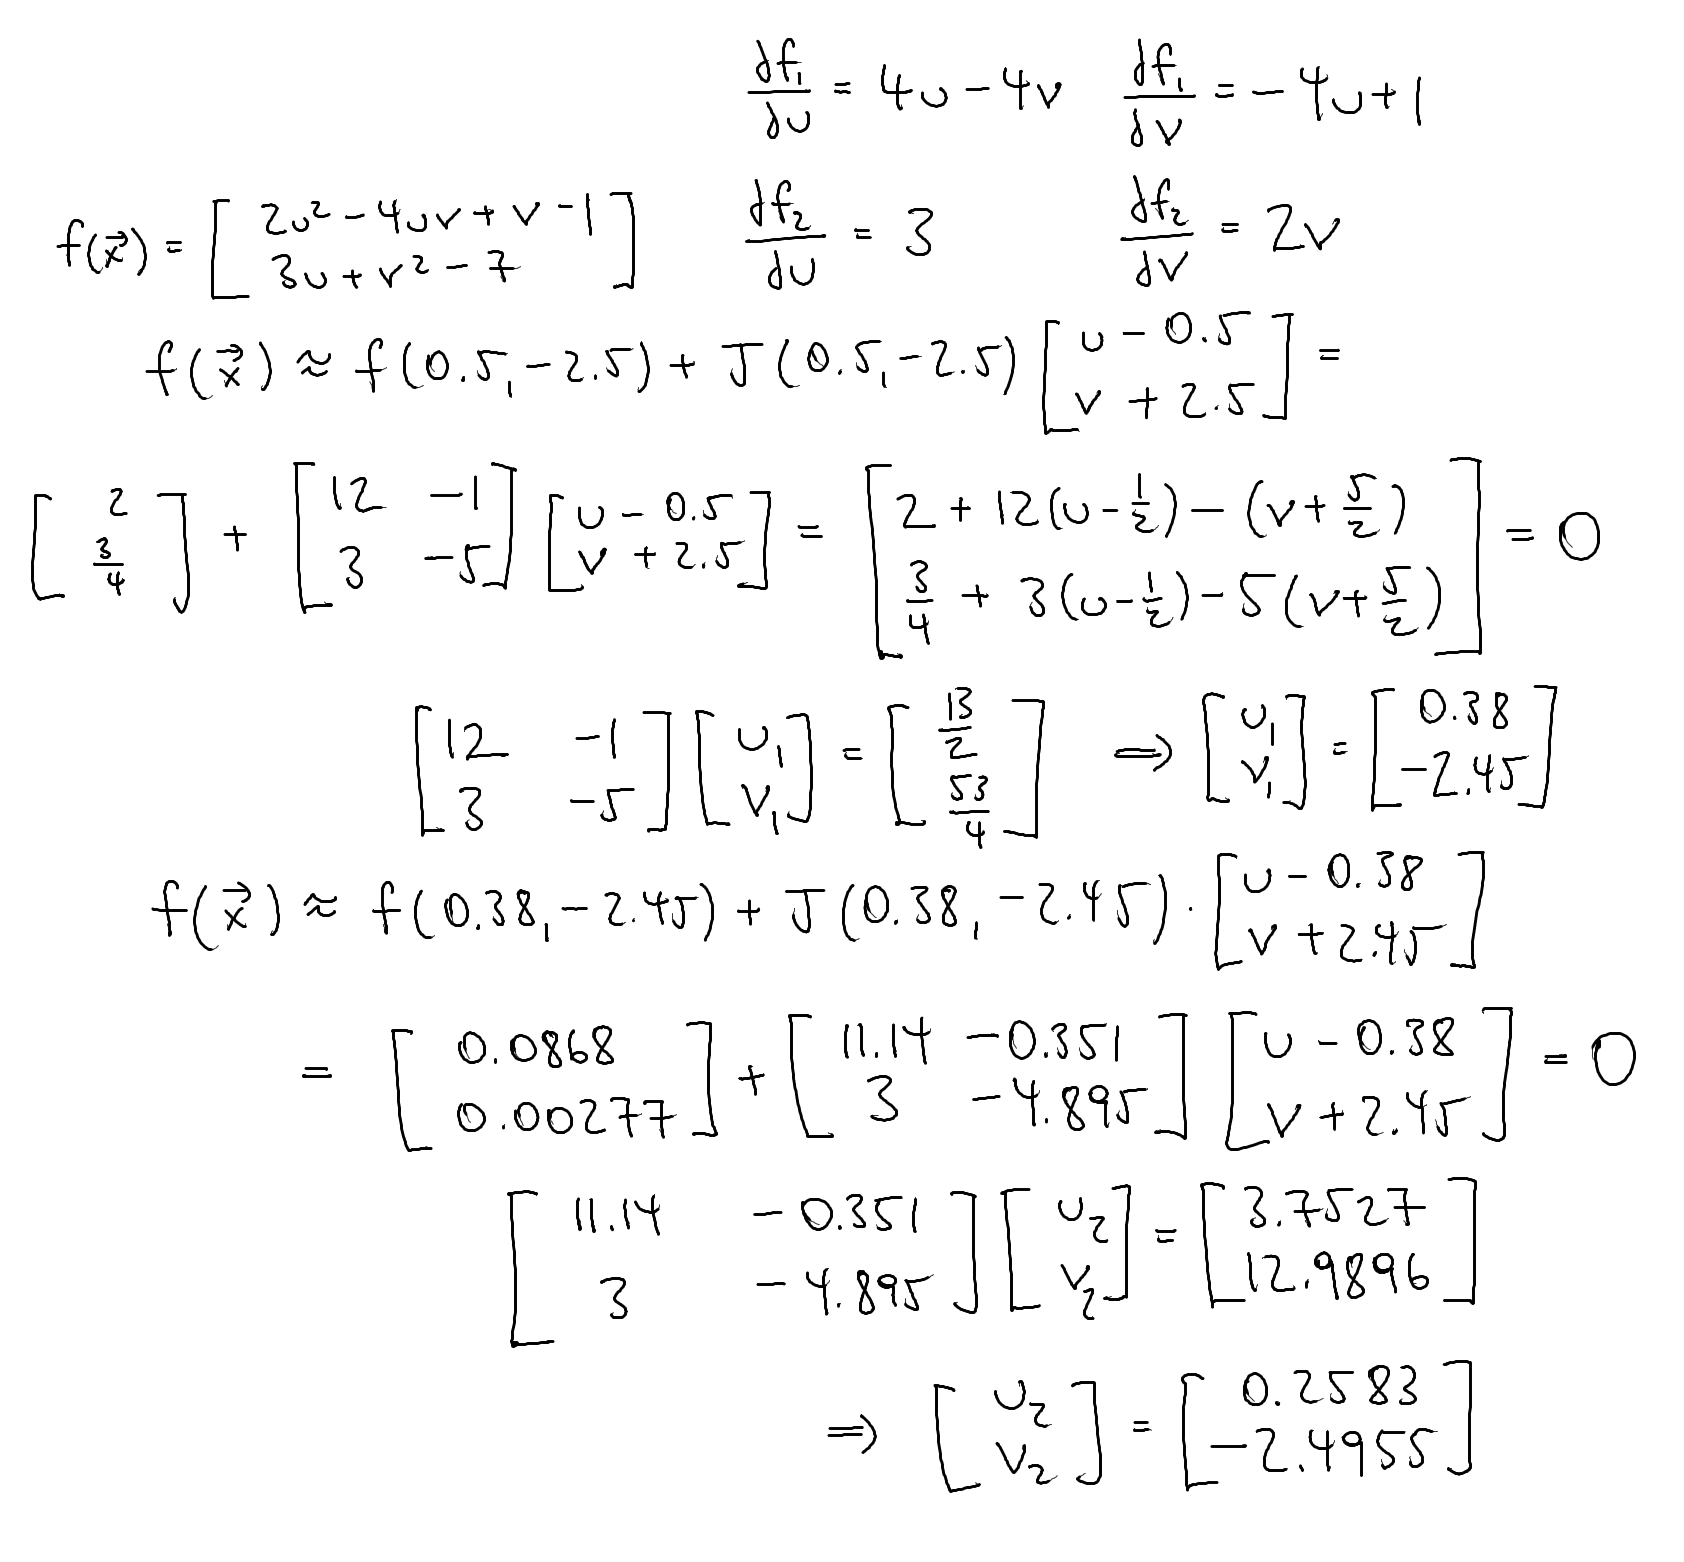 df₁/du = 4u - 4v   df₁/dv = -4u + 1
f(x⃗) = [ 2u² - 4uv + v - 1 ; 3u + v² - 7 ]   df₂/du = 3   df₂/dv = 2v
f(x⃗) ≈ f(0.5, -2.5) + J(0.5, -2.5) [ u - 0.5 ; v + 2.5 ] =
[ 2 ; 3/4 ] + [ 12 -1 ; 3 -5 ] [ u - 0.5 ; v + 2.5 ] = [ 2 + 12(u - 1/2) - (v + 5/2) ; 3/4 + 3(u - 1/2) - 5(v + 5/2) ] = 0
[ 12 -1 ; 3 -5 ] [ u₁ ; v₁ ] = [ 13/2 ; 53/4 ] ⇒ [ u₁ ; v₁ ] = [ 0.38 ; -2.45 ]
f(x⃗) ≈ f(0.38, -2.45) + J(0.38, -2.45) · [ u - 0.38 ; v + 2.45 ]
= [ 0.0868 ; 0.00277 ] + [ 11.14 -0.351 ; 3 -4.895 ] [ u - 0.38 ; v + 2.45 ] = 0
[ 11.14 -0.351 ; 3 -4.895 ] [ u₂ ; v₂ ] = [ 3.7527 ; 12.9896 ]
⇒ [ u₂ ; v₂ ] = [ 0.2583 ; -2.4955 ]